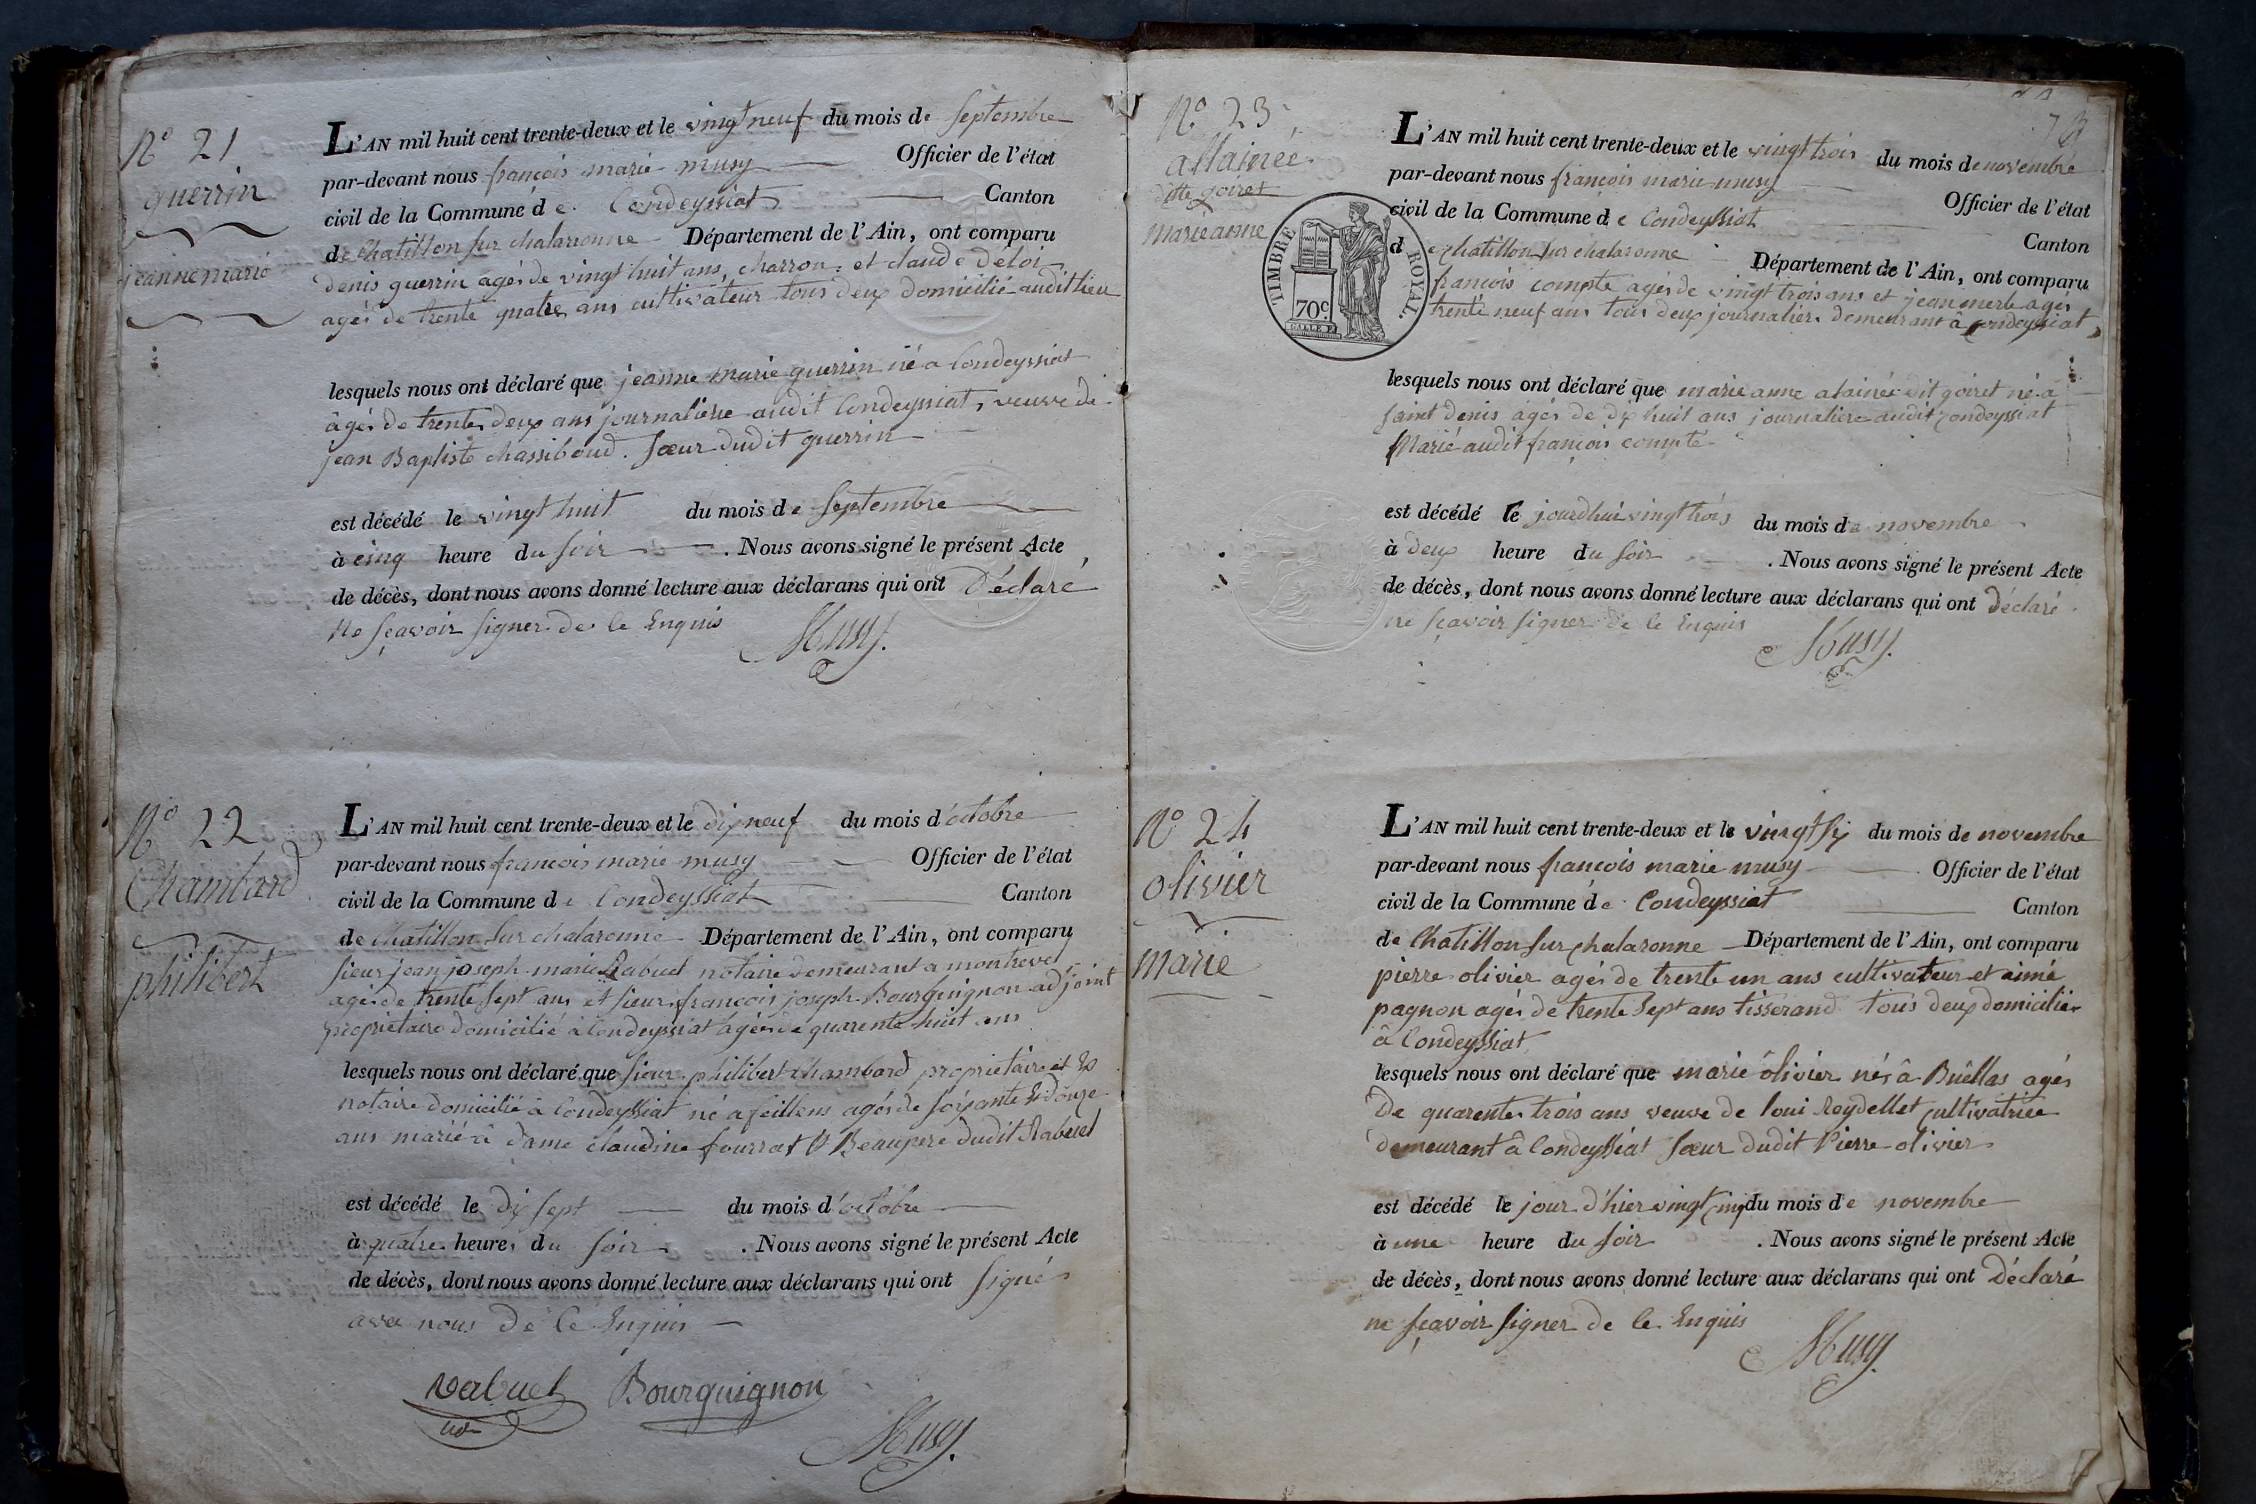 N° 21
guerrin
jeanne marie
L'AN mil huit cent trente-deux et le vingt neuf du mois de Septembre
par-devant nous françois marie musy Officier de l'état
civil de la Commune de Condeyssiat Canton
de Chatillon sur chalaronne Département de l'Ain, ont comparu
denis guerrin agés de vingt huit ans, charron, et claude Deloi
agés de trente quatre ans cultivateur tous deux domicilié audit lieu
lesquels nous ont déclaré que jeanne marie guerrin né a Condeyssiat
âgés de trente deux ans journalière audit Condeyssiat, veuve de
jean Baptiste chassiboud. Sœur dudit guerrin
est décédé le vingt huit du mois de Septembre
à cinq heure du soir . Nous avons signé le présent Acte
de décès, dont nous avons donné lecture aux déclarans qui ont Déclaré
ne sçavoir signer de ce Enquis
Musy.
N° 22
Chambard
philibert
L'AN mil huit cent trente-deux et le dix neuf du mois d'octobre
par-devant nous françois marie musy Officier de l'état
civil de la Commune de Condeyssiat Canton
de Chatillon Sur chalaronne Département de l'Ain, ont comparu
sieur jean joseph marie Rabuel notaire demeurant a montrevel
agés de trente sept ans et sieur françois joseph Bourguignon adjoint
propriétaire domicilié à Condeyssiat agés de quarente huit ans
lesquels nous ont déclaré que sieur philibert chambard propriétaire et Ex
notaire domicilié à Condeyssiat né a feillens agés de soixante & douze
ans marié à dame claudine fourrat & Beaupere dudit Rabuel
est décédé le dix sept du mois d'octobre
à quatre heures du soir . Nous avons signé le présent Acte
de décès, dont nous avons donné lecture aux déclarans qui ont signé
avec nous De Ce Enquis
Rabuel Bourguignon
Musy.
N° 23
allainée
ditte goiret
marie anne
TIMBRE ROYAL.
70 c.
L'AN mil huit cent trente-deux et le vingt trois du mois de novembre
par-devant nous françois marie musy Officier de l'état
civil de la Commune de Condeyssiat Canton
de chatillon sur chalaronne Département de l'Ain, ont comparu
françois compte agés de vingt trois ans et jean merle agés
trente neuf ans tous deux journaliers demeurant à Condeyssiat
lesquels nous ont déclaré que marie anne alainée dit goiret né à
saint denis agés de dix huit ans journalière audit Condeyssiat
Marié audit françois compte
est décédé le jourdhui vingt trois du mois de novembre
à deux heure du soir . Nous avons signé le présent Acte
de décès, dont nous avons donné lecture aux déclarans qui ont Déclaré
ne sçavoir signer de ce Enquis
Musy.
N° 24
olivier
marie
L'AN mil huit cent trente-deux et le vingt six du mois de novembre
par-devant nous françois marie musy Officier de l'état
civil de la Commune de Condeyssiat Canton
de Chatillon sur chalaronne Département de l'Ain, ont comparu
pierre olivier agés de trente un ans cultivateur et aimé
pagnon agés de trente sept ans tisserand tous deux domicilié
à Condeyssiat
lesquels nous ont déclaré que marie olivier nés à Buëllas agés
De quarente trois ans veuve de loui Reydellet cultivatrice
demeurant à Condeyssiat Sœur dudit Pierre olivier
est décédé le jour d'hier vingt cinq du mois de novembre
à une heure du soir . Nous avons signé le présent Acte
de décès, dont nous avons donné lecture aux déclarans qui ont Déclaré
ne sçavoir signer de ce Enquis
Musy.